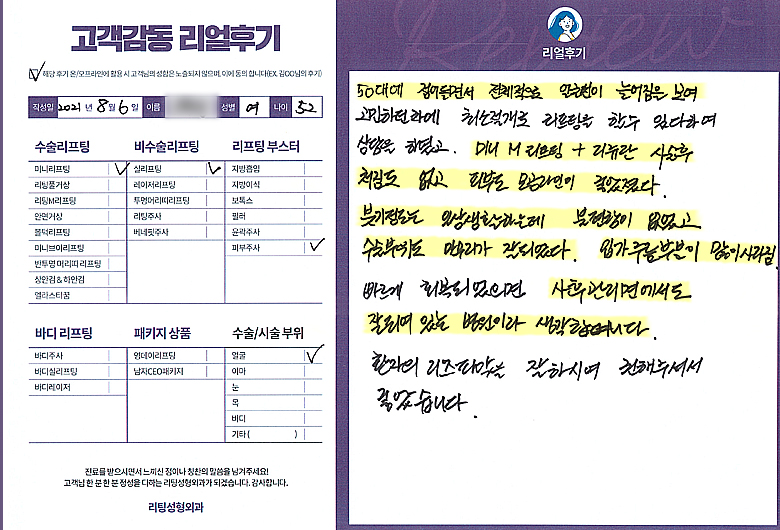 고객감동 리얼후기
해당 후기 온/오프라인에 활용 시 고객님의 성함은 노출되지 않으며, 이에 동의 합니다(EX. 김OO님의 후기)
작성일 2021 년 8 월 6 일 이름 성별 여 나이 52
수술리프팅
미니리프팅
리팅풀거상
리팅M리프팅
안면거상
볼턱리프팅
미니브이리프팅
반투명 머리띠 리프팅
상안검 & 하안검
엘라스티꿈
비수술리프팅
실리프팅
레이저리프팅
투명머리띠리프팅
리팅주사
베네핏주사
리프팅 부스터
지방흡입
지방이식
보톡스
필러
윤곽주사
피부주사
바디 리프팅
바디주사
바디실리프팅
바디레이저
패키지 상품
엄데이리프팅
남자CEO패키지
수술/시술 부위
얼굴
이마
눈
목
바디
기타 ( )
진료를 받으시면서 느끼신 점이나 칭찬의 말씀을 남겨주세요!
고객님 한 분 한 분 정성을 다하는 리팅성형외과가 되겠습니다. 감사합니다.
리팅성형외과
Review
리얼후기
50대에 접어들면서 전체적으로 안면이 늘어짐은 보여
고민하던차에 최소절개로 리프팅을 할수 있다하여
상담을 하였고. 미니 M 리프팅 + 리쥬란 시술후
처짐도 없고 피부도 모공라인이 좋았졌다.
붓기정도는 일상생활하는데 불편함이 없었고
수술부위도 마무리가 잘되었다. 입가주름부분이 많이사라짐
빠르게 회복되었으며 사후관리면에서도
잘되어 있는 병원이라 생각합니다.
환자의 니즈파악을 잘하시어 권해주셔서
좋았습니다.